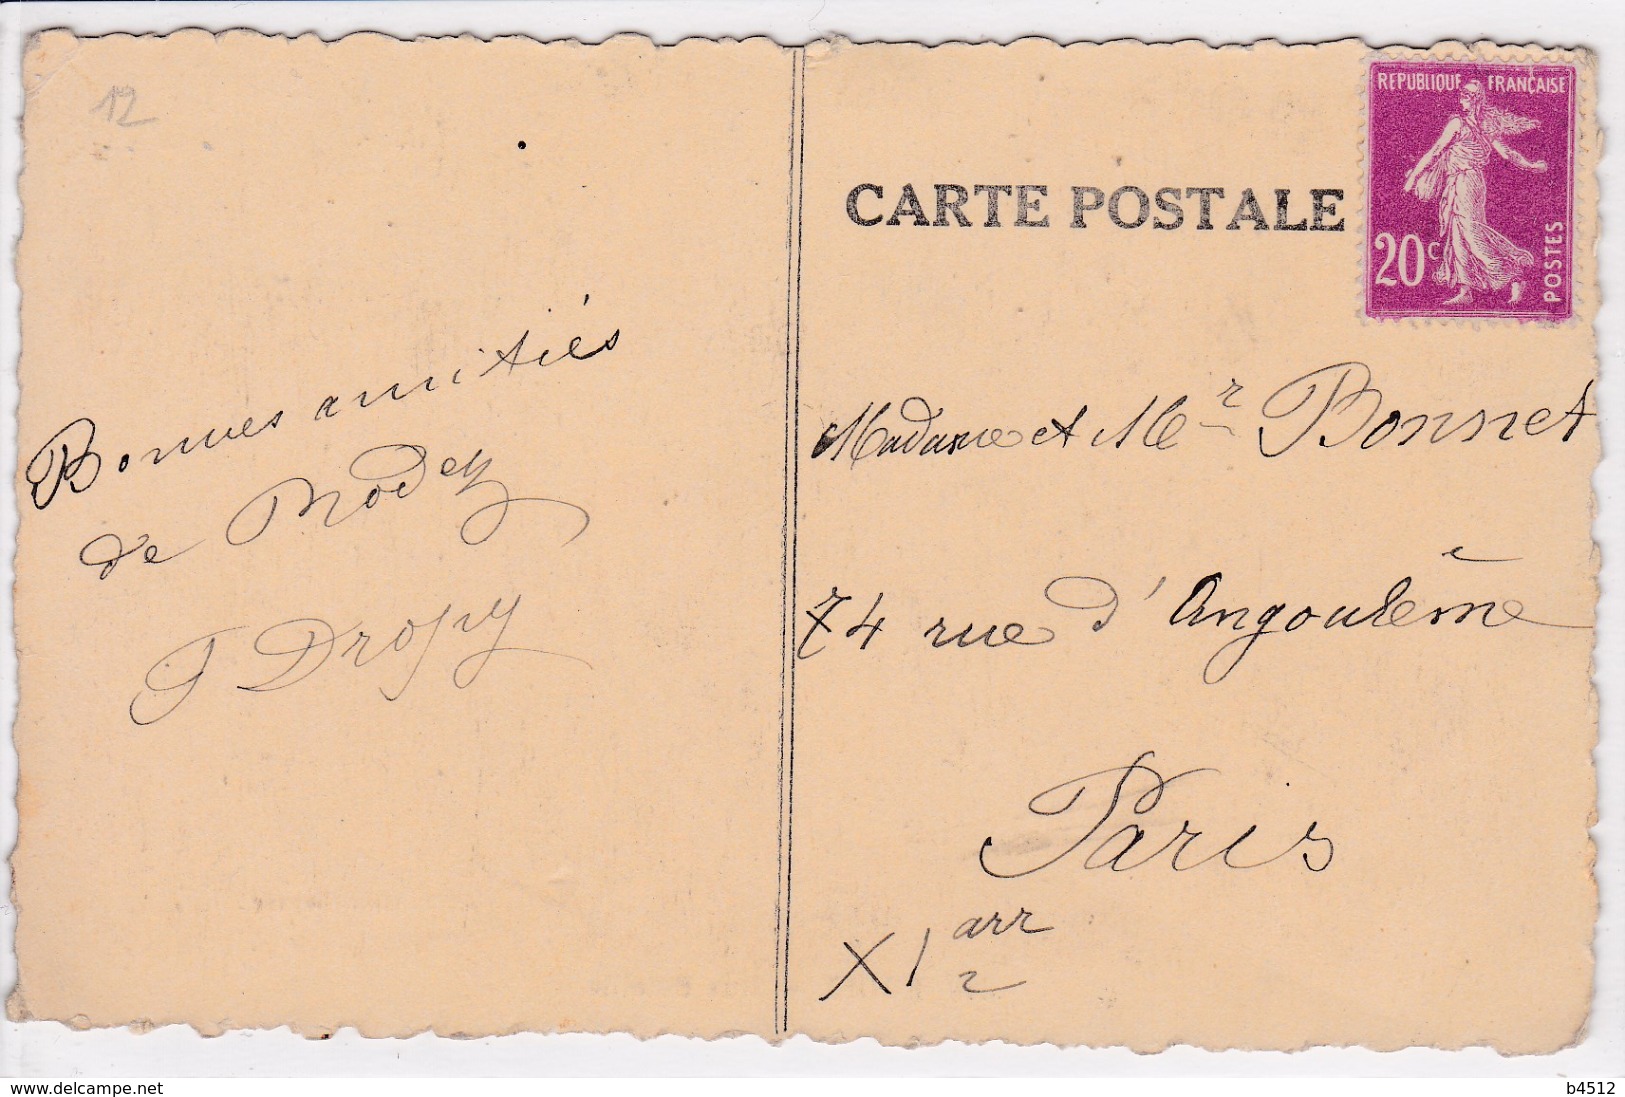 12
CARTE POSTALE
REPUBLIQUE FRANÇAISE
20c
POSTES
Bonnes amitiés
de Rodez
Madame et Mr Bonnet
74 rue d'Angoulême
Paris
XI arr
www.delcampe.net
b4512